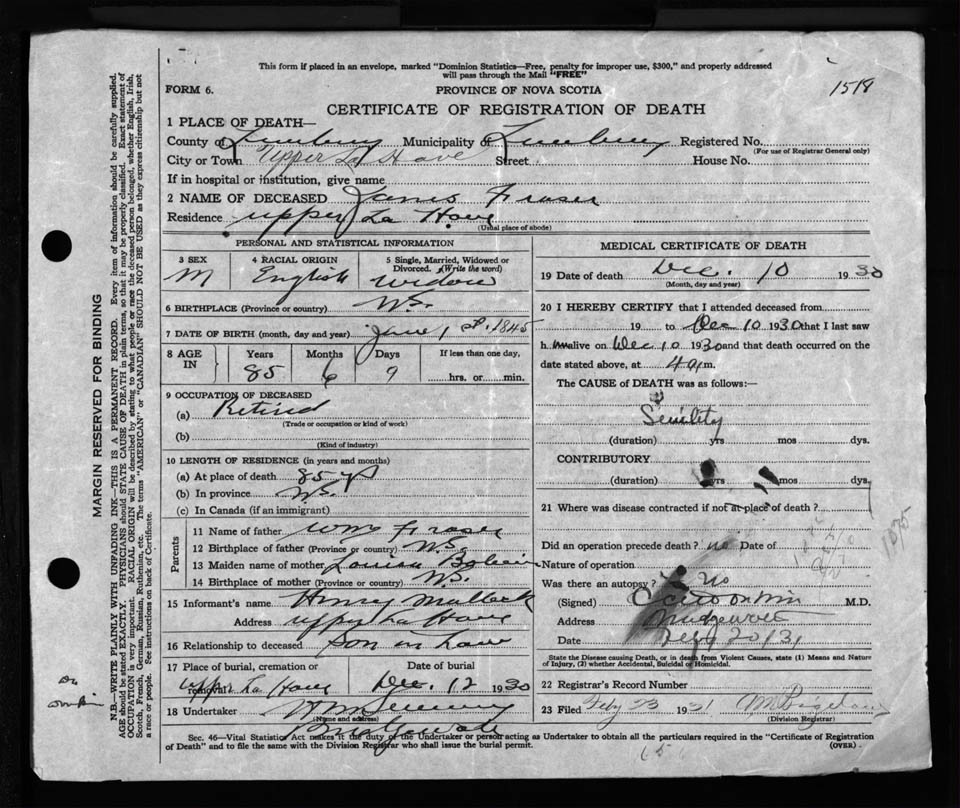 This form if placed in an envelope, marked "Dominion Statistics—Free, penalty for improper use, $300," and properly addressed
will pass through the Mail "FREE"
FORM 6.
PROVINCE OF NOVA SCOTIA
1519
CERTIFICATE OF REGISTRATION OF DEATH
1 PLACE OF DEATH—
County of Lunenburg Municipality of Lunenburg Registered No.
(For use of Registrar General only)
City or Town Upper La Have Street House No.
If in hospital or institution, give name
2 NAME OF DECEASED James Fraser
Residence Upper La Have
(Usual place of abode)
PERSONAL AND STATISTICAL INFORMATION
3 SEX 4 RACIAL ORIGIN 5 Single, Married, Widowed or Divorced. (Write the word)
M English Widow
6 BIRTHPLACE (Province or country) N.S.
7 DATE OF BIRTH (month, day and year) June 1st 1845
8 AGE IN Years Months Days If less than one day,
85 6 9 hrs. or min.
9 OCCUPATION OF DECEASED
(a) Retired
(Trade or occupation or kind of work)
(b)
(Kind of industry)
10 LENGTH OF RESIDENCE (in years and months)
(a) At place of death 85 y
(b) In province N.S.
(c) In Canada (if an immigrant)
Parents
11 Name of father Wm Fraser
12 Birthplace of father (Province or country) N.S.
13 Maiden name of mother Louisa
14 Birthplace of mother (Province or country) N.S.
15 Informant's name Henry
Address Upper La Have
16 Relationship to deceased Son in Law
17 Place of burial, cremation or removal Date of burial
Upper La Have Dec. 12 1930
18 Undertaker
(Name and address)
MEDICAL CERTIFICATE OF DEATH
19 Date of death Dec. 10 1930
(Month, day and year)
20 I HEREBY CERTIFY that I attended deceased from
19 to Dec 10 1930 that I last saw
him alive on Dec 10 1930 and that death occurred on the
date stated above, at 4 a m.
The CAUSE of DEATH was as follows:
Senility
(duration) yrs mos dys.
CONTRIBUTORY
(duration) yrs mos dys.
21 Where was disease contracted if not at place of death?
Did an operation precede death? no Date of
Nature of operation
Was there an autopsy? No
(Signed) M.D.
Address
Date Feb 20/31
State the Disease causing Death, or in death from Violent Causes, state (1) Means and Nature
of Injury, (2) whether Accidental, Suicidal or Homicidal.
22 Registrar's Record Number
23 Filed Feby 23 1931
(Division Registrar)
Sec. 46—Vital Statistics Act makes it the duty of the Undertaker or person acting as Undertaker to obtain all the particulars required in the "Certificate of Registration
of Death" and to file the same with the Division Registrar who shall issue the burial permit.
(OVER)
MARGIN RESERVED FOR BINDING
N.B.—WRITE PLAINLY WITH UNFADING INK—THIS IS A PERMANENT RECORD. Every item of information should be carefully supplied.
AGE should be stated EXACTLY. PHYSICIANS should STATE CAUSE OF DEATH in plain terms, so that it may be properly classified. Exact statement of
OCCUPATION is very important. RACIAL ORIGIN will be described by stating to what people or race the deceased person belonged, whether English, Irish,
Scotch, French, German, Russian, Ruthenian, etc. The terms "AMERICAN" or "CANADIAN" SHOULD NOT BE USED as they express citizenship but not
a race or people. See instructions on back of Certificate.